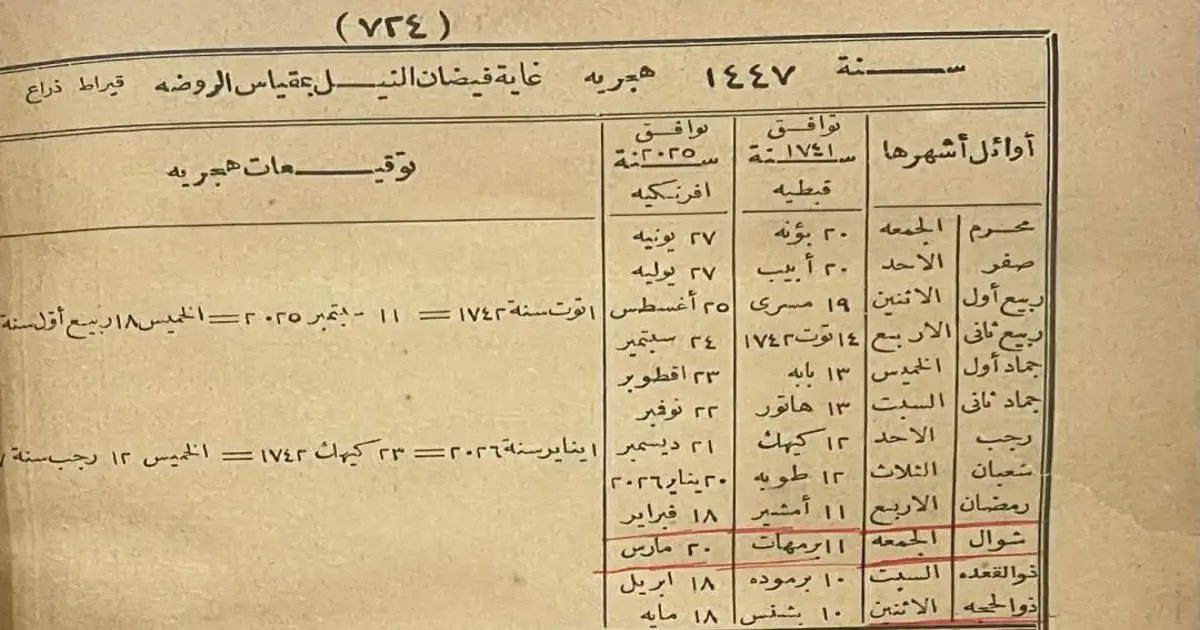 (٧٢٤)
سنة ١٤٤٧ هجريه غاية فيضان النيل بمقياس الروضه قيراط ذراع
أوائل أشهرها توافق سنة ١٧٤١ قبطيه توافق سنة ٢٠٢٥ افرنكيه توقيعات هجريه
محرم الجمعه ٢٠ بؤنه ٢٧ يونيه
صفر الاحد ٢٠ أبيب ٢٧ يوليه
ربيع أول الاثنين ١٩ مسرى ٢٥ أغسطس ١ توت سنة ١٧٤٢ = ١١ سبتمبر ٢٠٢٥ = الخميس ١٨ ربيع أول سنة
ربيع ثانى الاربع ١٤ توت ١٧٤٢ ٢٤ سبتمبر
جماد أول الخميس ١٣ بابه ٢٣ اقطوبر
جماد ثانى السبت ١٣ هاتور ٢٢ نوفبر
رجب الاحد ١٢ كيهك ٢١ ديسمبر ١ يناير سنة ٢٠٢٦ = ٢٣ كيهك ١٧٤٢ = الخميس ١٢ رجب سنة ٧
شعبان الثلاث ١٢ طوبه ٢٠ يناير ٢٠٢٦
رمضان الاربع ١١ أمشير ١٨ فبراير
شوال الجمعه ١١ برمهات ٢٠ مارس
ذوالقعده السبت ١٠ برموده ١٨ ابريل
ذوالحجه الاثنين ١٠ بشنس ١٨ مايه